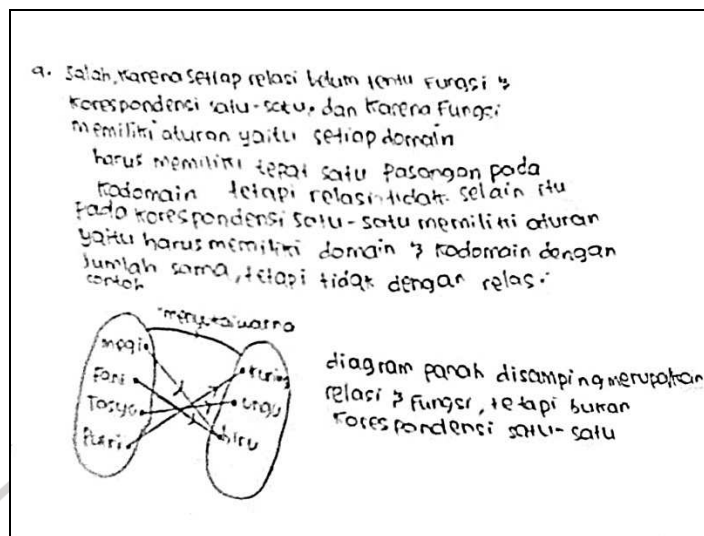 a. Salah, karena setiap relasi belum tentu Fungsi &
korespondensi satu-satu, dan karena Fungsi
memiliki aturan yaitu setiap domain
harus memiliki tepat satu pasangan pada
kodomain tetapi relasi tidak. selain itu
pada korespondensi satu-satu memiliki aturan
yaitu harus memiliki domain & kodomain dengan
jumlah sama, tetapi tidak dengan relasi.
contoh
menyukai warna
megi
Fani
Tasya
Putri
kuning
ungu
biru
diagram panah disamping merupakan
relasi & Fungsi, tetapi bukan
korespondensi satu-satu